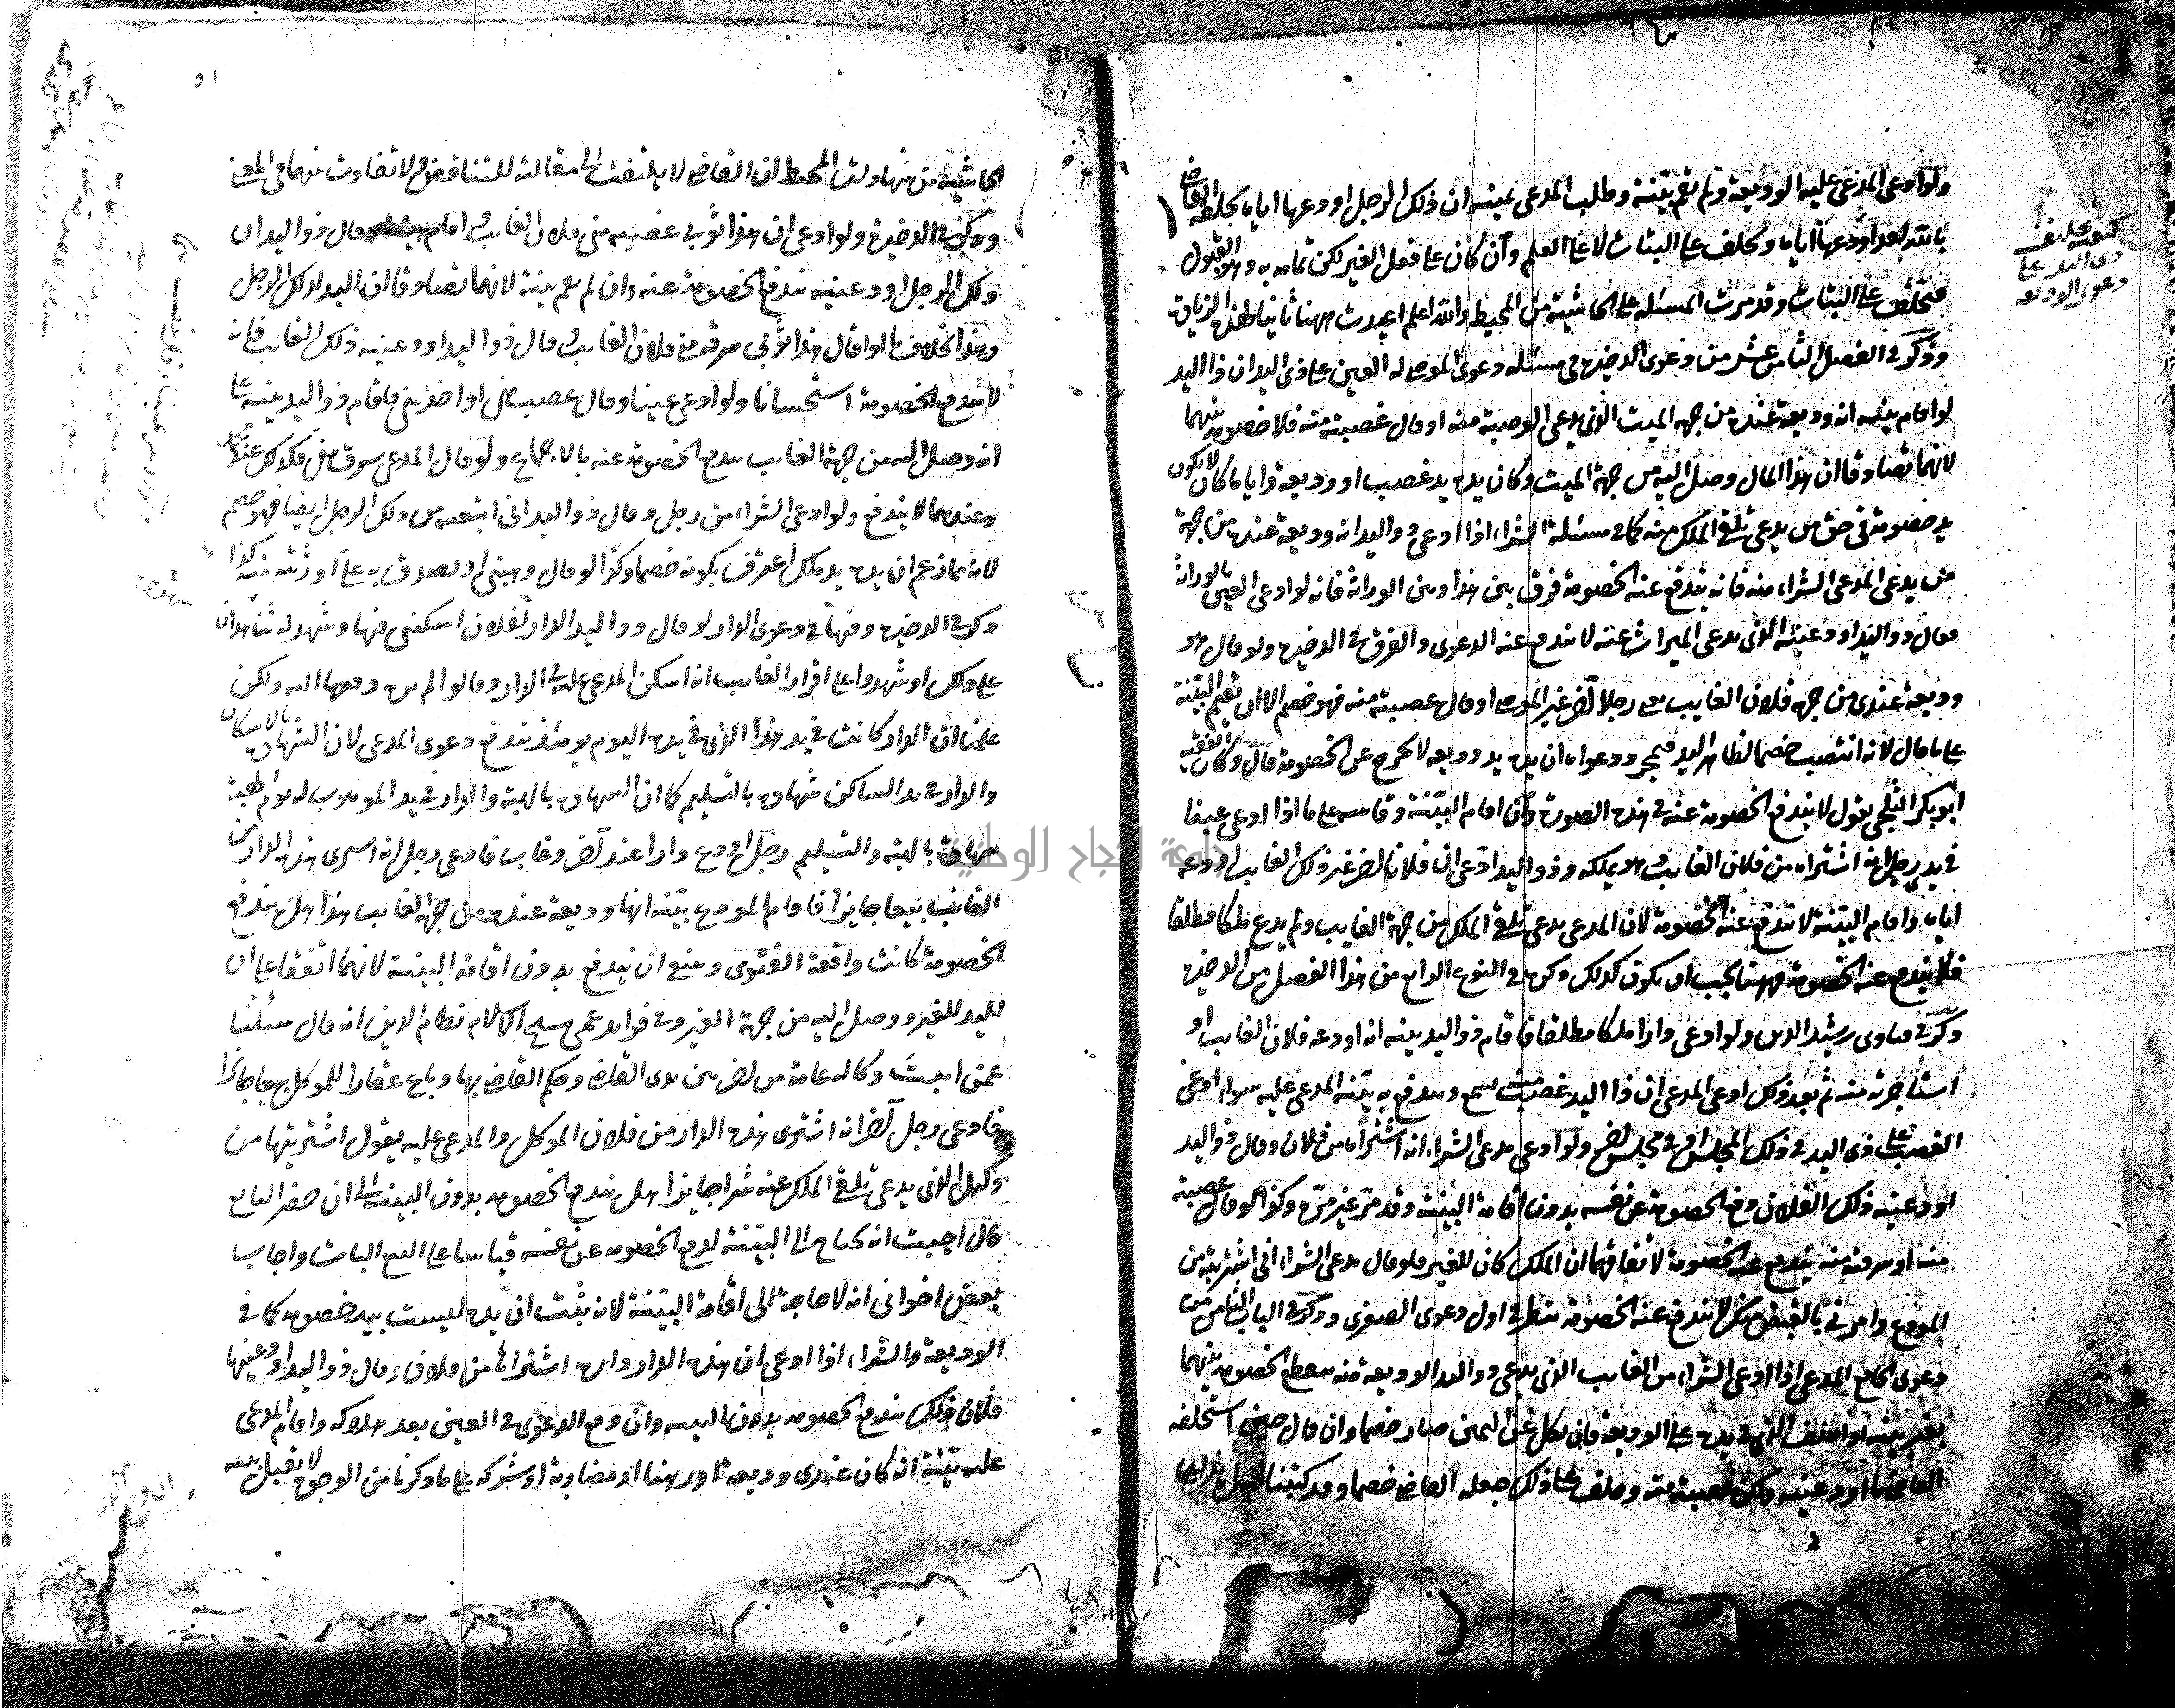 ولو ادعى المدعى عليه الوديعة ولم يقم بينة وطلب المدعى يمينه ان ذلك الرجل اودعها اياه يحلفه القاضى
بالله لقد اودعها اياه ويحلف على البتات لا على العلم وان كان على فعل الغير لكن تمامه به وهو القبول
فيحلف على البتات وقد مرت المسئله على الحاشية من المحيط والله اعلم اعيدت ههنا ثانيا
وذكر فى الفصل الثامن عشر من دعوى الذخيرة فى مسئلة دعوى الموصى له العين على ذى اليد ان ذا اليد
لو اقام بينة انه وديعة عنده من جهة الميت الذى يدعى الوصية منه او قال غصبته منه فلا خصومة بينهما
لانهما تصادقا ان هذا المال وصل اليه من جهة الميت وكان يده يد غصب او وديعة واياما كان لا يكون
يد خصومة فى حق من يدعى تلقى الملك منه كما فى مسئلة الشراء اذا ادعى ذو اليد انه وديعة عنده من جهة
من يدعى المدعى الشراء منه فانه يندفع عنه الخصومة فرق بين هذا وبين الوراثة فانه لو ادعى العين بالوراثة
فقال ذو اليد اودعنيه الذى يدعى الميراث عنه لا يندفع عنه الدعوى والفرق فى الذخيرة ولو قال هو
وديعة عندى من جهة فلان الغايب يعنى رجلا آخر غير الموصى او قال غصبته منه فهو خصم الا ان يقيم البينة
على ما قال لانه انتصب خصما لظاهر اليد فبمجرد دعواه ان يده يد وديعة لا يخرج عن الخصومة قال وكان الفقيه
ابو بكر البلخى يقول لا يندفع الخصومة عنه فى هذه الصورة وان اقام البينة وقاسه على ما اذا ادعى عينا
فى يد رجل انه اشتراه من فلان الغايب وهو يملكه وذو اليد ادعى ان فلانا آخر غير ذلك الغايب اودعه
اياه واقام البينة لا يندفع عنه الخصومة لان المدعى يدعى تلقى الملك من جهة الغايب ولم يدع ملكا مطلقا
فلا يندفع عنه الخصومة فههنا يجب ان يكون كذلك ذكره فى النوع الرابع من هذا الفصل من الذخيرة
وذكر فى فتاوى رشيد الدين ولو ادعى دارا ملكا مطلقا فاقام ذو اليد بينة انه اودعه فلان الغايب او
استاجرته منه ثم بعد ذلك ادعى المدعى ان ذا اليد غصبه يسمع ويندفع به بينة المدعى عليه سواء ادعى
الغصب على ذى اليد فى ذلك المجلس او فى مجلس آخر ولو ادعى مدعى الشراء انه اشتراه من فلان وقال ذو اليد
اودعنيه ذلك الفلان دفع الخصومة عن نفسه بدون اقامة البينة وقد مر غير مرة وكذا لو قال غصبته
منه او سرقته منه يندفع عنه الخصومة لاتفاقهما ان الملك كان للغير فلو قال مدعى الشراء انى اشتريته من
المودع وامرنى بالقبض منك لا يندفع عنه الخصومة ينظر فى اول دعوى الصغرى وذكر فى الباب الثامن من
دعوى الجامع المدعى اذا ادعى الشراء من الغايب الذى يدعى ذو اليد الوديعة منه سقط الخصومة بينهما
بغير بينة اذا حلف الذى فى يده على الوديعة فان نكل عن اليمين صار خصما وان قال حين استحلفه
القاضى ما اودعنيه ولكن غصبته منه وحلف على ذلك جعله القاضى خصما وقد كتبنا قبل هذا على
كيفية تحليف
ذى اليد على
دعوى الوديعة
٥١
الحاشية من شهادات المحيط ان القاضى لا يلتفت الى مقالته للتناقض ولا تفاوت بينهما فى المعنى
وذكر فى الذخيرة ولو ادعى ان هذا ثوبى غصبه منى فلان الغايب واقام بينة وقال ذو اليد ان
ذلك الرجل اودعنيه يندفع الخصومة عنه وان لم يقم بينة لانهما تصادقا ان اليد لذلك الرجل
وهذا بخلاف ما اذا قال هذا ثوبى سرقه منى فلان الغايب وقال ذو اليد اودعنيه ذلك الغايب فانه
لا يندفع الخصومة استحسانا ولو ادعى عينا وقال غصب منى او اخذ منى فاقام ذو اليد بينة على
انه وصل اليه من جهة الغايب يندفع الخصومة عنه بالاجماع ولو قال المدعى سرق منى فكذلك عند محمد
وعندهما لا يندفع ولو ادعى الشراء من رجل وقال ذو اليد انى ابتعته من ذلك الرجل ايضا فهو خصم
لانه لما زعم ان يده يد ملك اعترف بكونه خصما وكذا لو قال وهبنى او تصدق به على او رثته منه كذا
ذكر فى الذخيرة وفيها فى دعوى الدار لو قال ذو اليد الدار لفلان اسكننى فيها وشهد له شاهدان
على ذلك او شهدوا على اقرار الغايب انه اسكن المدعى عليه فى الدار وقالوا لم نره دفعها اليه ولكن
علمنا ان الدار كانت فى يد هذا الذى فى يده اليوم يومئذ يندفع دعوى المدعى لان الشهادة بالاسكان
والدار فى يد الساكن شهادة بالتسليم كما ان الشهادة بالهبة والدار فى يد الموهوب له يوم الهبة
شهادة بالهبة والتسليم رجل اودع دارا عند آخر وغاب فادعى رجل انه اشترى هذه الدار من
الغايب بيعا جايزا فاقام المودع بينة انها وديعة عنده من جهة الغايب هذا هل يندفع
الخصومة كانت واقعة الفتوى وينبغى ان يندفع بدون اقامة البينة لانهما اتفقا على ان
اليد للغير ووصل اليه من جهة الغير وفى فوايد عمى شيخ الاسلام نظام الدين انه قال سئلنا
عمن اثبت وكالة عامة من آخر بين يدى القاضى وحكم القاضى بها وباع عقارا للموكل بيعا جايزا
فادعى رجل آخر انه اشترى هذه الدار من فلان الموكل والمدعى عليه يقول اشتريتها من
وكيل الذى يدعى تلقى الملك عنه شرا جايزا هل يندفع الخصومة بدون البينة الى ان حضر البايع
قال اجبت انه يحتاج الى البينة لدفع الخصومة عن نفسه قياسا على البيع البات واجاب
بعض اخوانى انه لا حاجة الى اقامة البينة لانه يثبت ان يده ليست بيد خصومة كما فى
الوديعة والشراء اذا ادعى ان هذه الدار داره اشتراها من فلان وقال ذو اليد اودعنيها
فلان ذلك يندفع الخصومة بدون البينة وان وقع الدعوى فى العين بعد هلاكه واقام المدعى
عليه بينة انه كان عندى وديعة او رهنا او مضاربة او شركة على ما ذكرنا من الوجوه لا تقبل بينته